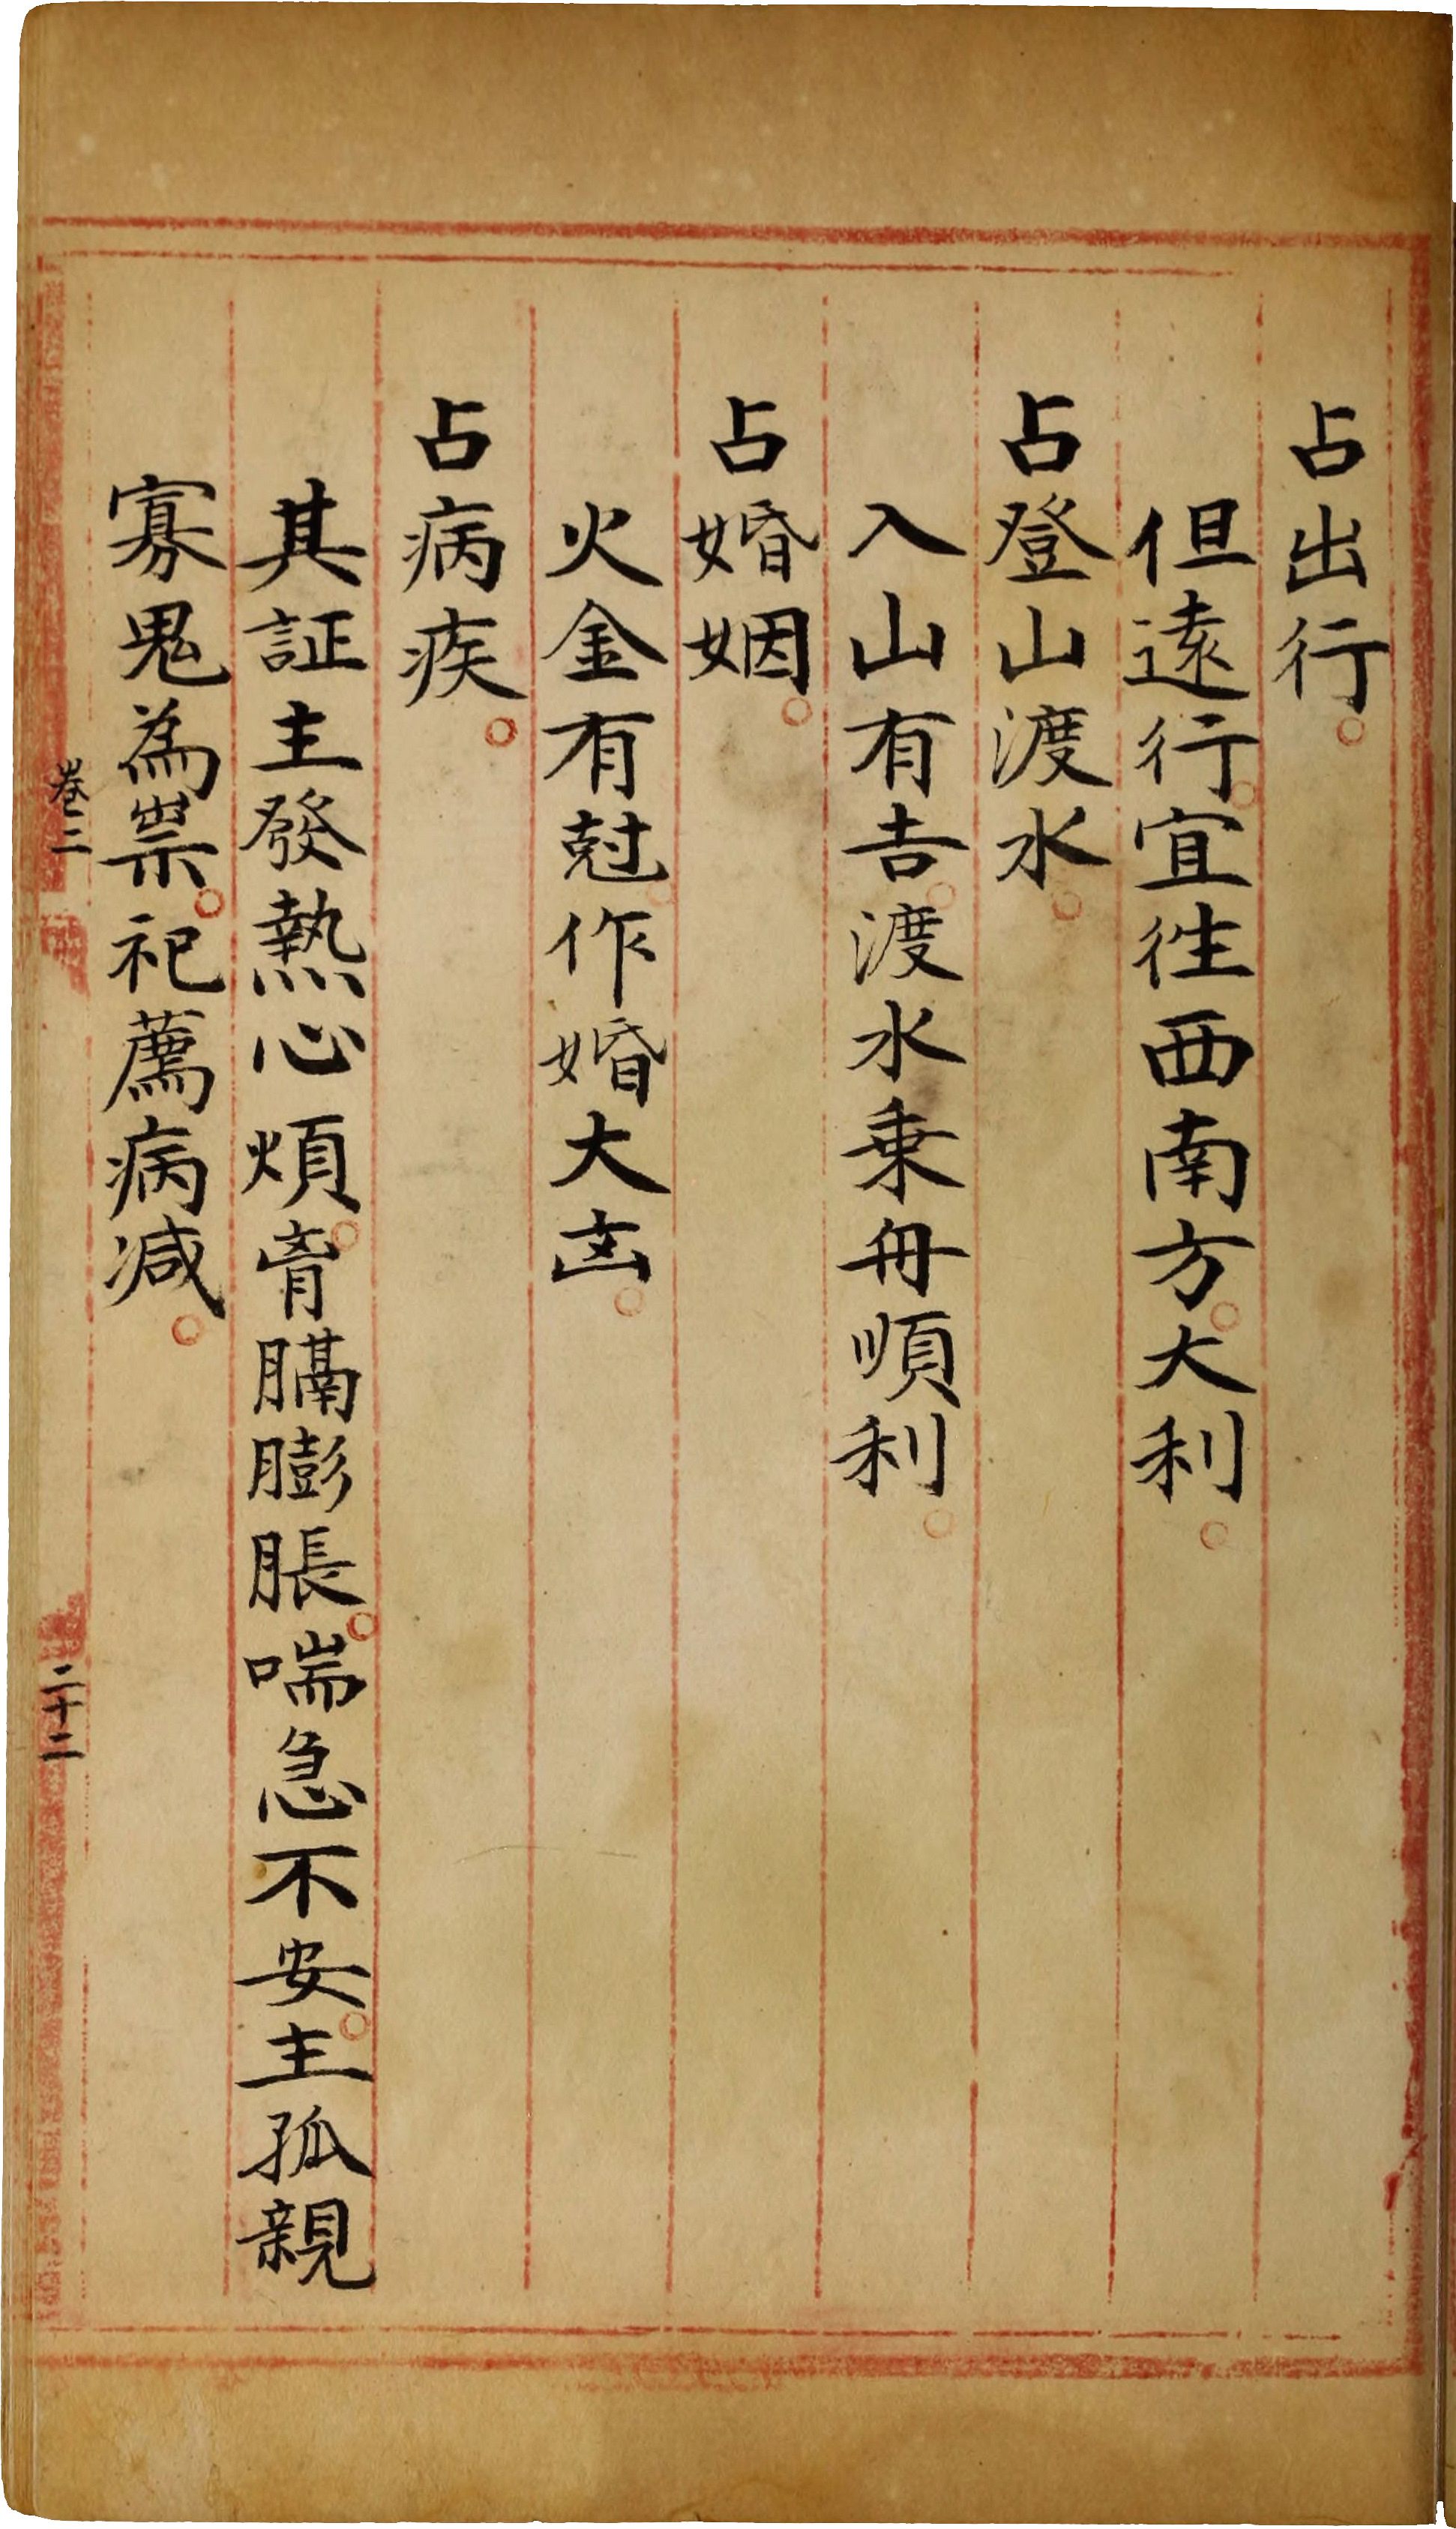 占出行。
但遠行。宜徃西南方。大利。
占登山渡水。
入山有吉。渡水乗舟順利。
占婚姻。
火金有尅。作婚大㐫。
占病疾。
其証主發熱心煩。肓膈膨脹。喘急不安。主孤親
寡鬼為祟。祀薦病减。
卷三
二十二